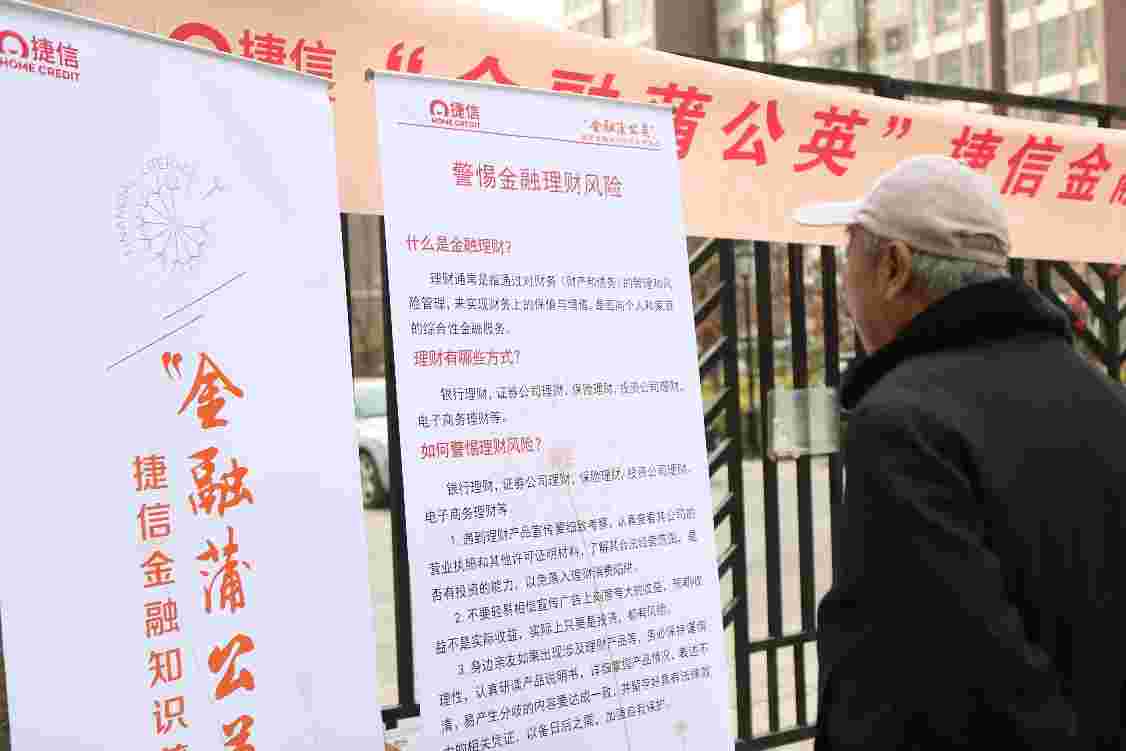 捷信
HOME CREDIT
“金融蒲公英
捷信金融知识
捷信
“金融蒲公英”捷信金融
捷信
HOME CREDIT
“金融蒲公英”
警惕金融理财风险
什么是金融理财？
理财通常是指通过对财务（财产和债务）的管理和风
险管理，来实现财务上的保值与增值，是面向个人和家庭
的综合性金融服务。
理财有哪些方式？
银行理财，证券公司理财，保险理财，投资公司理财，
电子商务理财等。
如何警惕理财风险？
银行理财，证券公司理财，保险理财，投资公司理财，
电子商务理财等
1. 遇到理财产品宣传要细致考察，认真查看其公司的
营业执照和其他许可证明材料，了解其合法经营范围，是
否有投资的能力，以免落入理财消费陷阱。
2. 不要轻易相信宣传广告上刻意夸大的收益，预期收
益不是实际收益，实际上只要是投资，都有风险。
3. 身边亲友如果出现涉及理财产品等，务必保持谨慎
理性，认真研读产品说明书，详细掌握产品情况，表述不
清，易产生分歧的内容要达成一致，并留存好具有法律效
力的相关凭证，以备日后之需，加强自我保护。